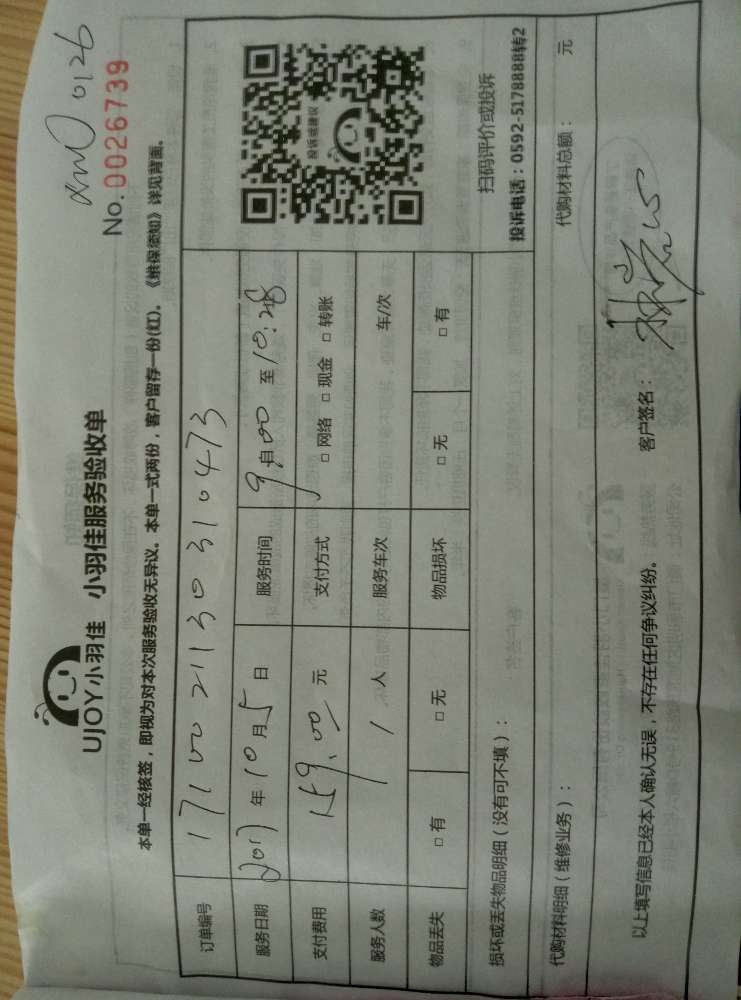 XM0126
No.0026739
UJOY小羽佳 小羽佳服务验收单
本单一经核签，即视为对本次服务验收无异议。本单一式两份，客户留存一份(红)。《维保须知》详见背面。
订单编号 171002113031 0473
服务日期 2017年10月5日 服务时间 9:00 至 10:28
支付费用 159.00 元 支付方式 □ 网络 □ 现金 □ 转账
服务人数 1 人 服务车次 车/次
物品丢失 □ 有 □ 无 物品损坏 □ 无 □ 有
投诉或建议
扫码评价或投诉
投诉电话：0592-5178888转2
损坏或丢失物品明细（没有可不填）：
代购材料明细（维修业务）： 代购材料总额： 元
以上填写信息已经本人确认无误，不存在任何争议纠纷。 客户签名：